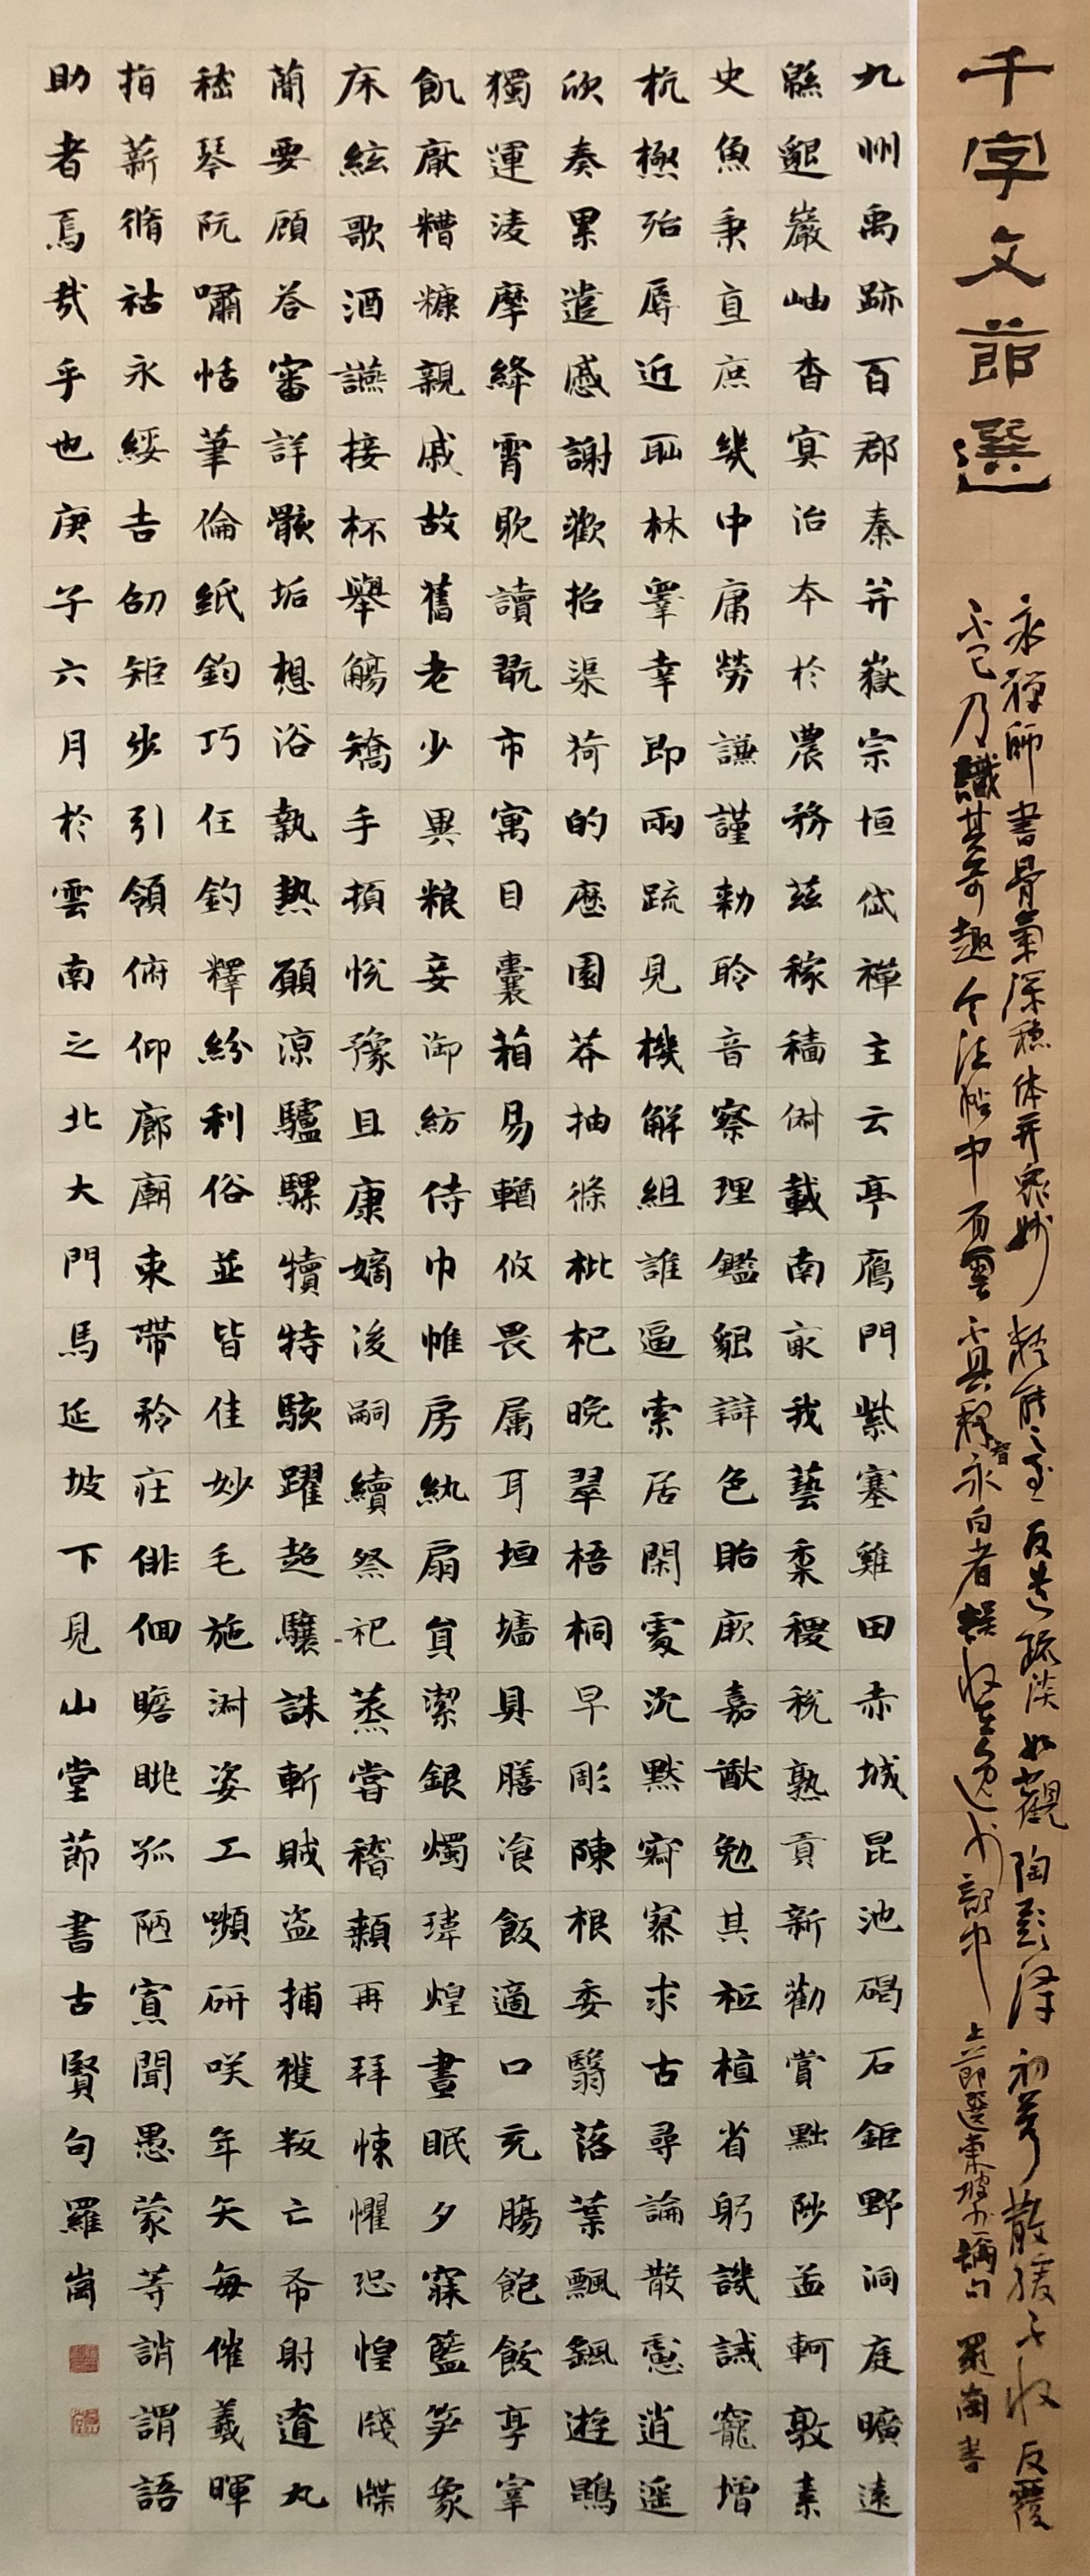 千字文節選
永禪師書骨氣深穩体并衆妙精能之至反造疏淡如觀陶彭澤初若散緩不收反覆
不已乃識其奇趣今法帖中有雲不具釋智永白者誤收在逸少部中 上節選東坡句 羅崗書
九州禹跡百郡秦并嶽宗恒岱禪主云亭鴈門紫塞雞田赤城昆池碣石鉅野洞庭曠遠
緜邈巖岫杳冥治本於農務茲稼穡俶載南畝我藝黍稷稅熟貢新勸賞黜陟孟軻敦素
史魚秉直庶幾中庸勞謙謹勑聆音察理鑑貌辯色貽厥嘉猷勉其祗植省躬譏誡寵增
杭極殆辱近恥林睾幸即兩疏見機解組誰逼索居閑處沉默寂寥求古尋論散慮逍遥
欣奏累遣慼謝歡招渠荷的歷園莽抽條枇杷晚翠梧桐早彫陳根委翳落葉飄飖遊鵾
獨運淩摩絳霄耽讀翫市寓目囊箱易輶攸畏属耳垣墻具膳飡飯適口充腸飽飫享宰
飢厭糟糠親戚故舊老少異粮妾御紡侍巾帷房紈扇員潔銀燭瑋煌晝眠夕寐籃笋象
床絃歌酒讌接杯舉觴矯手頓悅豫且康嫡後嗣續祭祀蒸嘗稽顙再拜悚懼恐惶牋牒
蕑要顧答審詳骸垢想浴執熱願涼驢騾犢特駭躍超驤誅斬賊盜捕獲叛亡布射遼丸
嵇琴阮嘯恬筆倫紙鈞巧任釣釋紛利俗並皆佳妙毛施淑姿工嚬研咲年矢每催羲暉
指薪脩祜永綏吉劭矩步引領俯仰廊廟束帶矜莊俳佪瞻眺孤陋寡聞愚蒙等誚謂語
助者焉哉乎也庚子六月於雲南之北大門馬延坡下見山堂節書古賢句羅崗